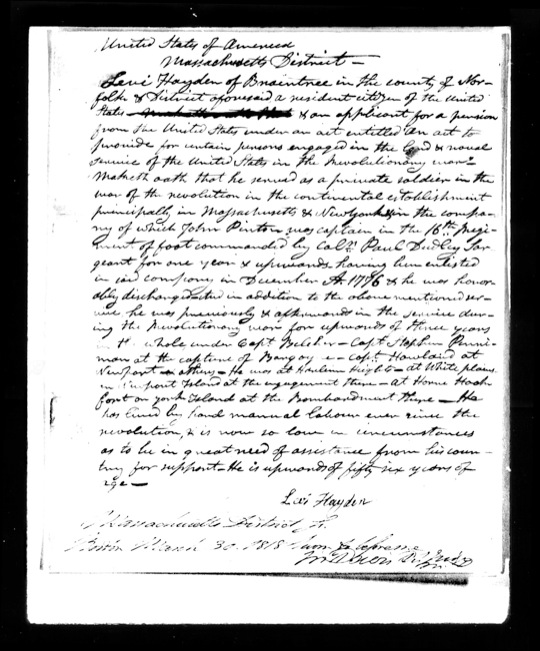 United States of America
Massachusetts District —
Levi Hayden of Braintree in the county of Nor-
folk & District aforesaid a resident citizen of the United
States & an applicant for a pension
from the United States under an act entitled An act to
provide for certain persons engaged in the land & naval
service of the United States in the revolutionary war
Maketh oath that he served as a private soldier in the
war of the revolution in the continental establishment
principally in Massachusetts & New York & in the compa-
ny of which John Pinton was captain in the 16th regi-
ment of foot commanded by Coln. Paul Dudley Sar-
geant for one year & upwards having been enlisted
in said company in December A. 1776 & he was honor-
ably discharged and in addition to the above mentioned ser-
vice he was previously & afterwards in the service dur-
ing the revolutionary war for upwards of three years
in the whole under Capt. Belcher — Capt. Stephen Penni-
man at the capture of Burgoyne — capt. Howland at
Newport & others — He was at Harlem Heights — at White plains
in Newport Island at the engagement there — at Horne Hook
fort on york Island at the Bombardment there — He
has lived by hard manual labour ever since the
revolution, & is now so low in circumstances
as to be in great need of assistance from his coun-
try for support. He is upwards of fifty six years of
age —
Levi Hayden
Massachusetts District, ss.
Boston March 30. 1818 Sworn to before me